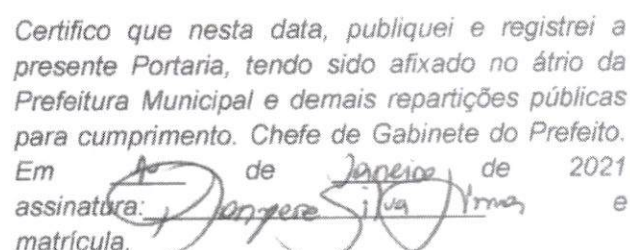 Certifico que nesta data, publiquei e registrei a
presente Portaria, tendo sido afixado no átrio da
Prefeitura Municipal e demais repartições públicas
para cumprimento. Chefe de Gabinete do Prefeito.
Em de Janeiro de 2021
assinatura: Silva e
matrícula.